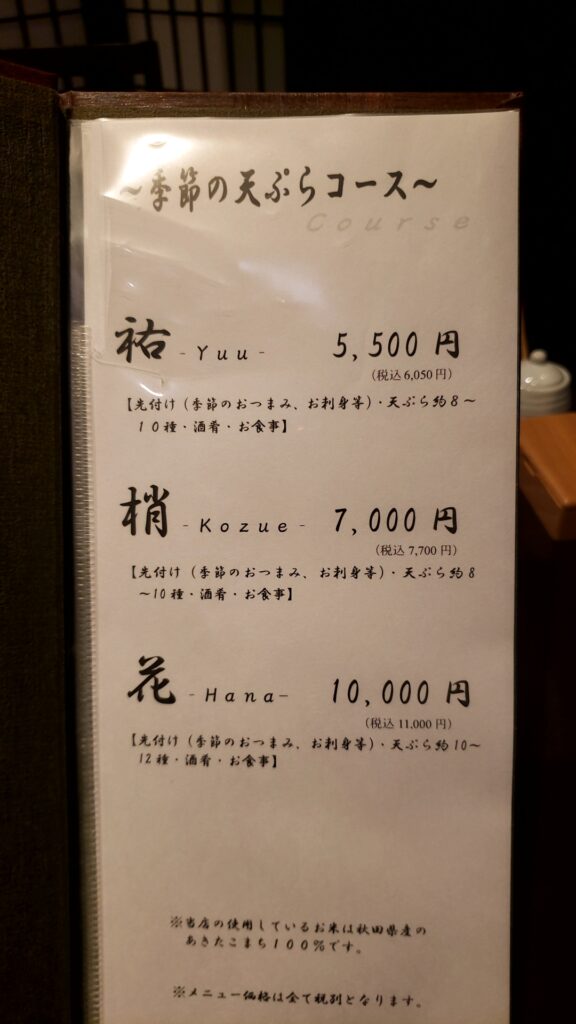 ～季節の天ぷらコース～
Course
祐 - Yuu - 5,500 円
（税込 6,050 円）
【先付け（季節のおつまみ、お刺身等）・天ぷら約８～
１０種・酒肴・お食事】
梢 - Kozue - 7,000 円
（税込 7,700 円）
【先付け（季節のおつまみ、お刺身等）・天ぷら約8
～10種・酒肴・お食事】
花 - Hana- 10,000 円
（税込 11,000 円）
【先付け（季節のおつまみ、お刺身等）・天ぷら約10～
12種・酒肴・お食事】
※当店の使用しているお米は秋田県産の
あきたこまち１００％です。
※メニュー価格は全て税別となります。